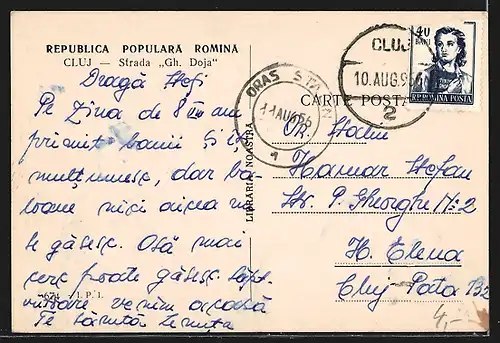 REPUBLICA POPULARĂ ROMÎNĂ
CLUJ — Strada „Gh. Doja"
Dragă Ștefi
Pe Ziua de 8 VIII am
primit banii Și îți
mulțumesc, dar ba-
loane nici aicea nu
se găsesc. Osă mai
cerc poate găsesc
venim acasă
Te sărută Lenuța
674 I. P. I.
LIBRĂRIA NOASTRĂ
CARTE POSTALĂ
ORAS STALIN
11 AUG 56
1
CLUJ
10. AUG. 956
2
40
BANI
R.P. ROMINA POSTA
Or. Stalin
Hamar Ștefan
Str. P. Gheorghe Nr: 2
H. Elena
Cluj Pata
4,-